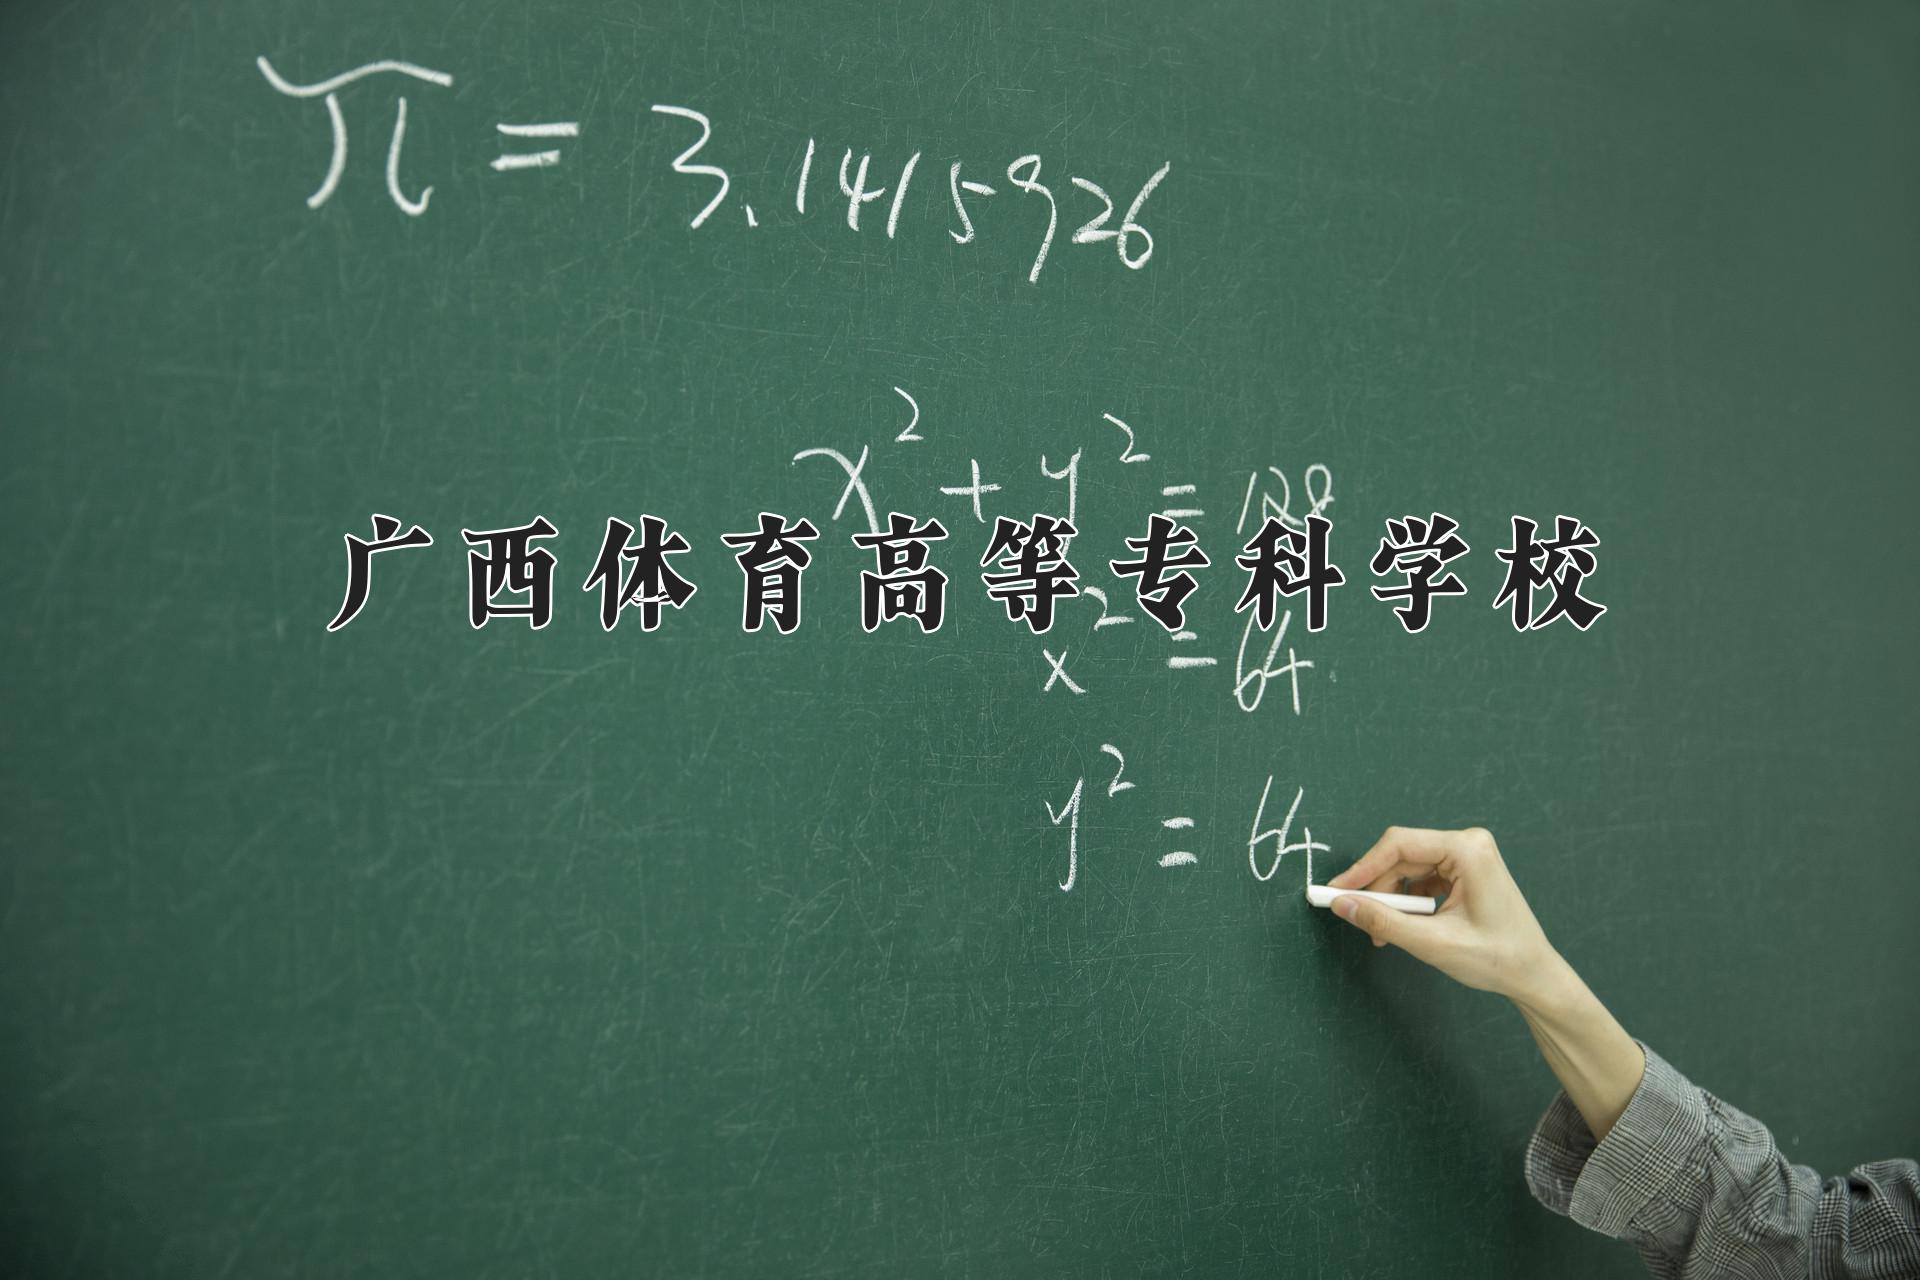 π = 3.1415926
x² + y² = 128
广西体育高等专科学校
x² = 64
y² = 64